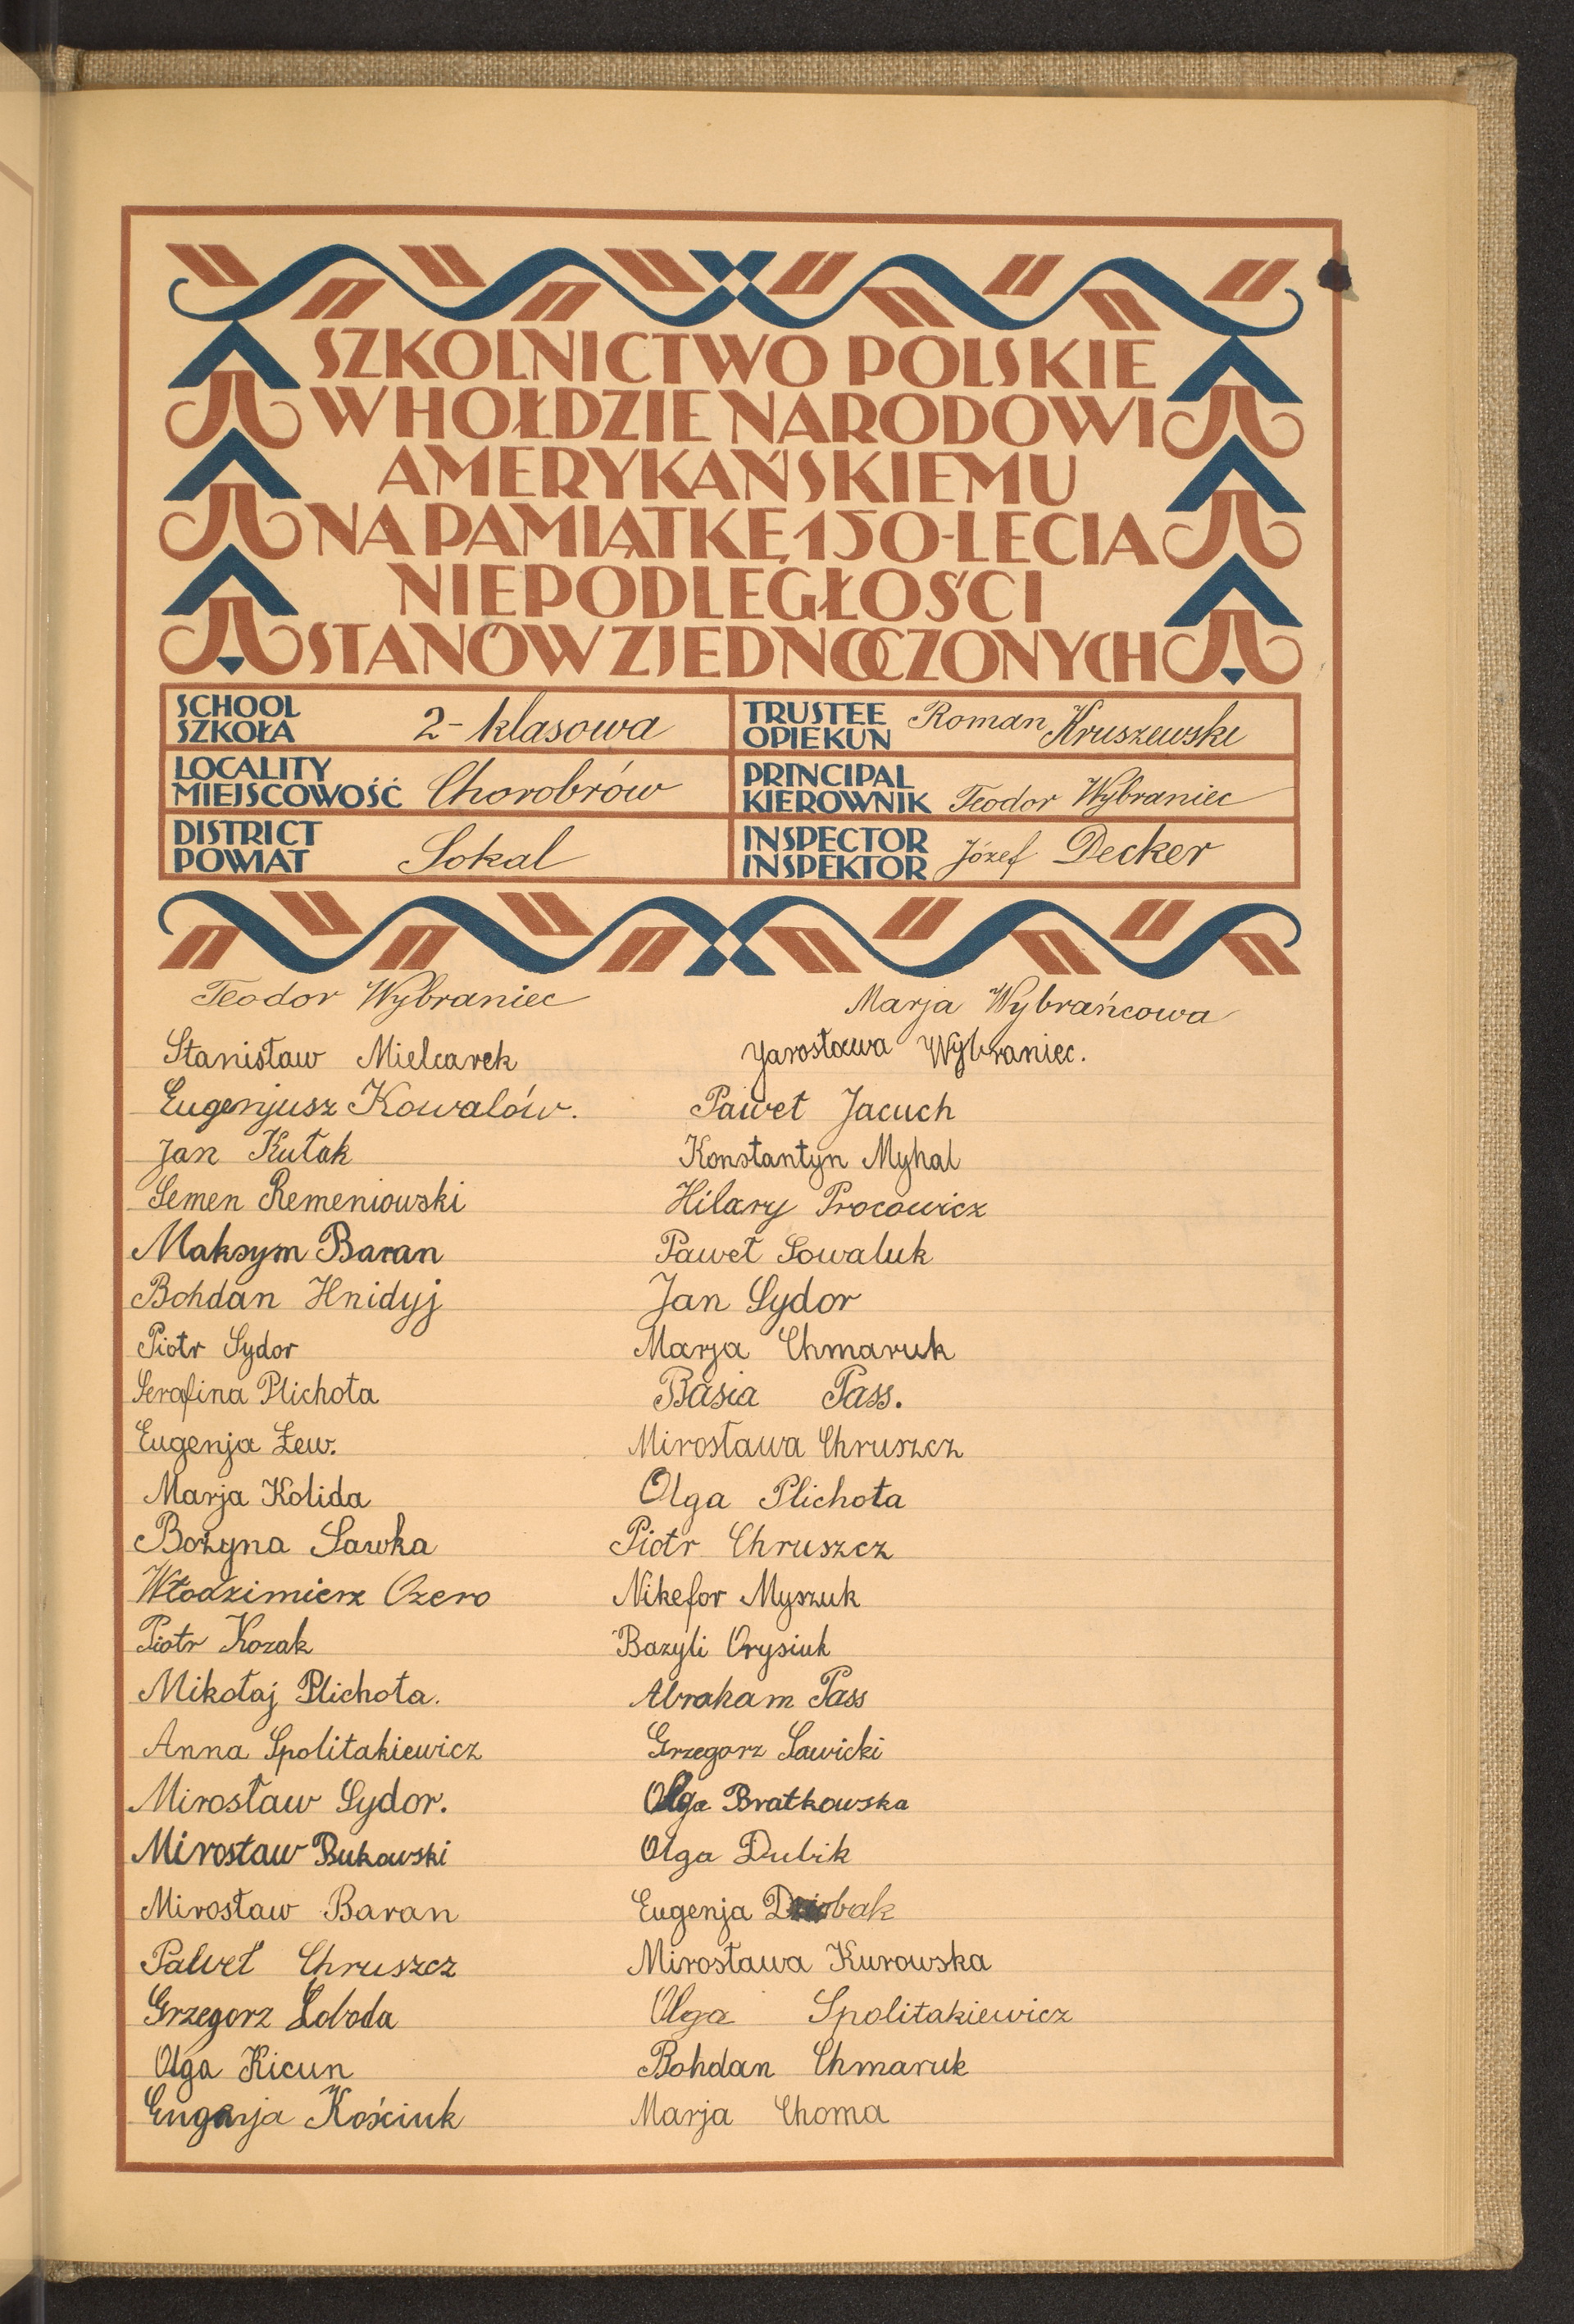 SZKOLNICTWO POLSKIE
W HOŁDZIE NARODOWI
AMERYKAŃSKIEMU
NA PAMIĄTKĘ 150-LECIA
NIEPODLEGŁOŚCI
STANÓW ZJEDNOCZONYCH
SCHOOL
SZKOŁA 2-klasowa
TRUSTEE
OPIEKUN Roman Kruszewski
LOCALITY
MIEJSCOWOŚĆ Chorobrów
PRINCIPAL
KIEROWNIK Teodor Wybraniec
DISTRICT
POWIAT Sokal
INSPECTOR
INSPEKTOR Józef Decker
Teodor Wybraniec Marja Wybrańcowa
Stanisław Mielcarek Jarosława Wybraniec.
Eugenjusz Kowalów. Paweł Jacuch
Jan Kułak Konstantyn Myhal
Semen Remeniowski Hilary Procowicz
Maksym Baran Paweł Sowaluk
Bohdan Hnidyj Jan Sydor
Piotr Sydor Marja Chmaruk
Serafina Plichota Basia Pass.
Eugenja Łew. Mirosława Chruszcz
Marja Kolida Olga Plichota
Bożyna Sawka Piotr Chruszcz
Włodzimierz Ozero Nikefor Myszuk
Piotr Kozak Bazyli Orysiuk
Mikołaj Plichota. Abraham Pass
Anna Spolitakiewicz Grzegorz Sawicki
Mirosław Sydor. Olga Bratkowska
Mirosław Bukowski Olga Dubik
Mirosław Baran Eugenja
Paweł Chruszcz Mirosława Kurowska
Grzegorz Łoboda Olga Spolitakiewicz
Olga Kicun Bohdan Chmaruk
Eugenja Kościuk Marja Choma